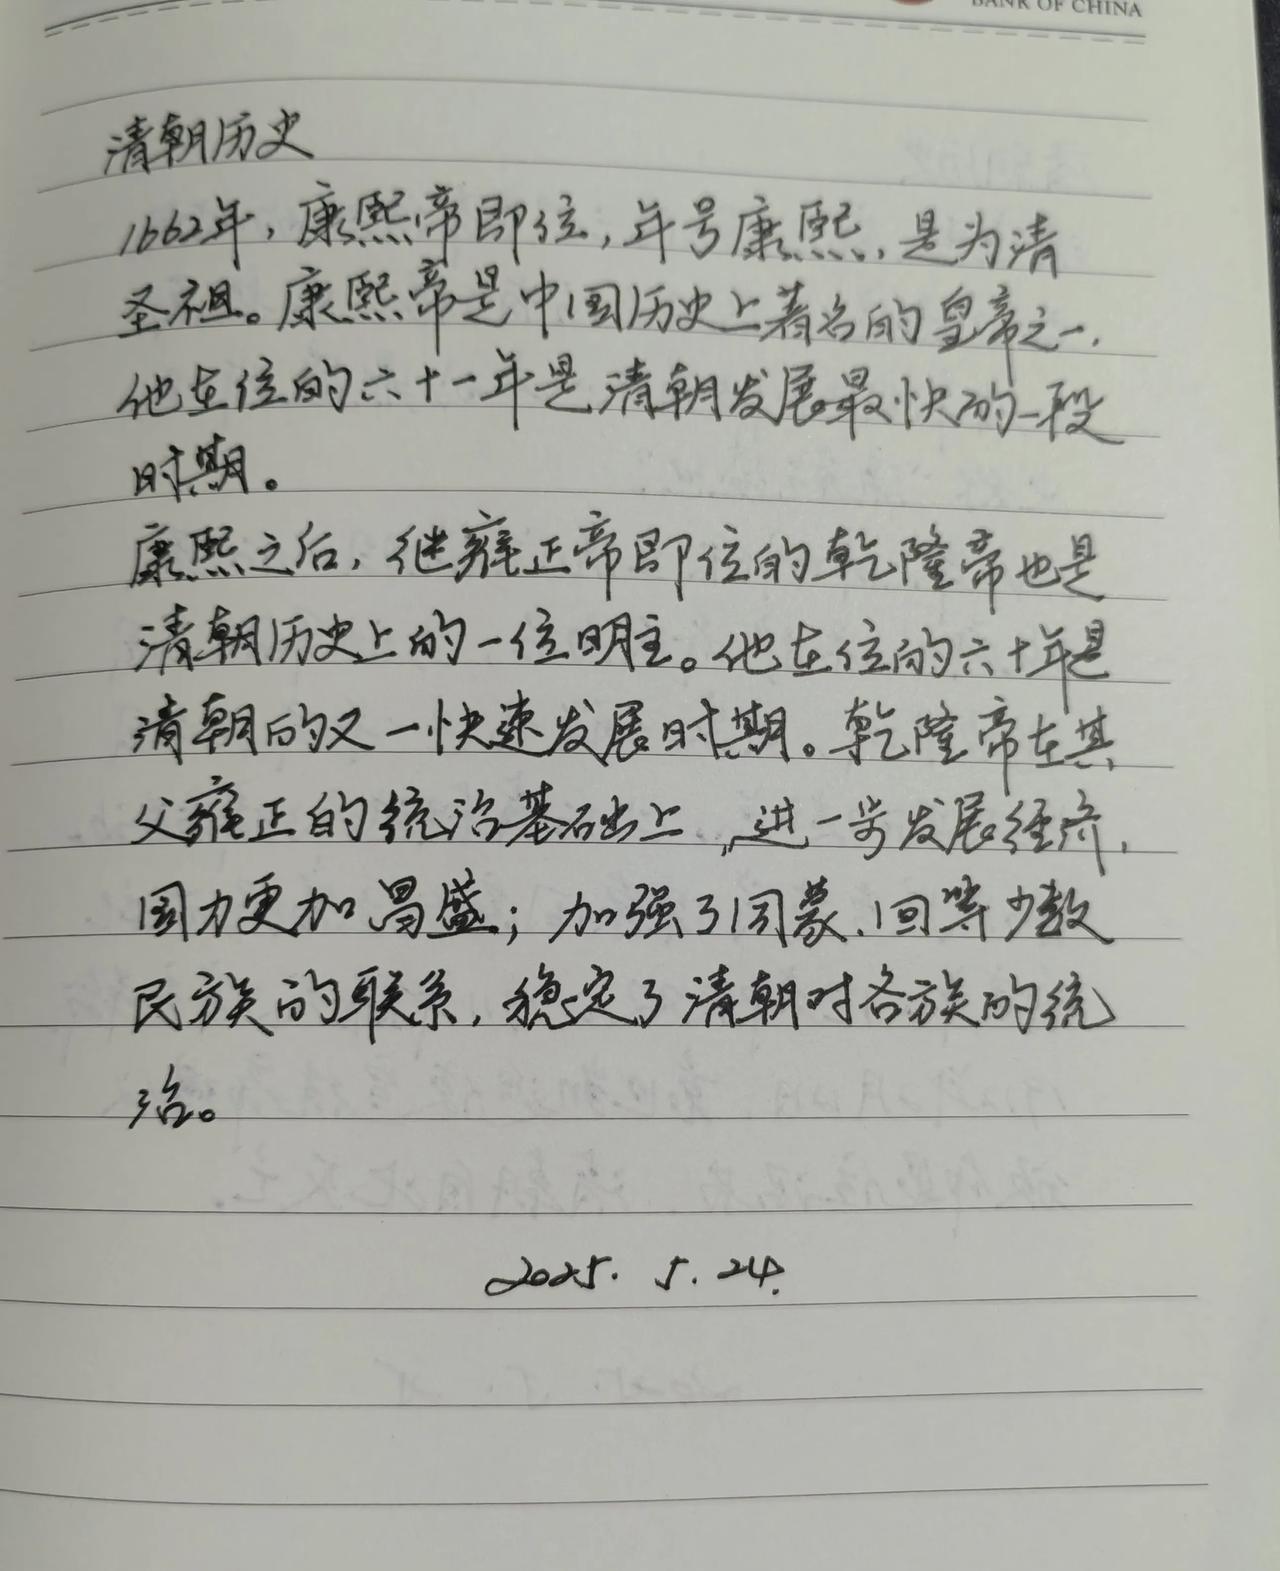 BANK OF CHINA
清朝历史
1662年，康熙帝即位，年号康熙，是为清
圣祖。康熙帝是中国历史上著名的皇帝之一，
他在位的六十一年是清朝发展最快的一段
时期。
康熙之后，继雍正帝即位的乾隆帝也是
清朝历史上的一位明主。他在位的六十年是
清朝的又一快速发展时期。乾隆帝在其
父雍正的统治基础上，进一步发展经济，
国力更加昌盛；加强了同蒙、回等少数
民族的联系，稳定了清朝对各族的统
治。
2025.5.24.